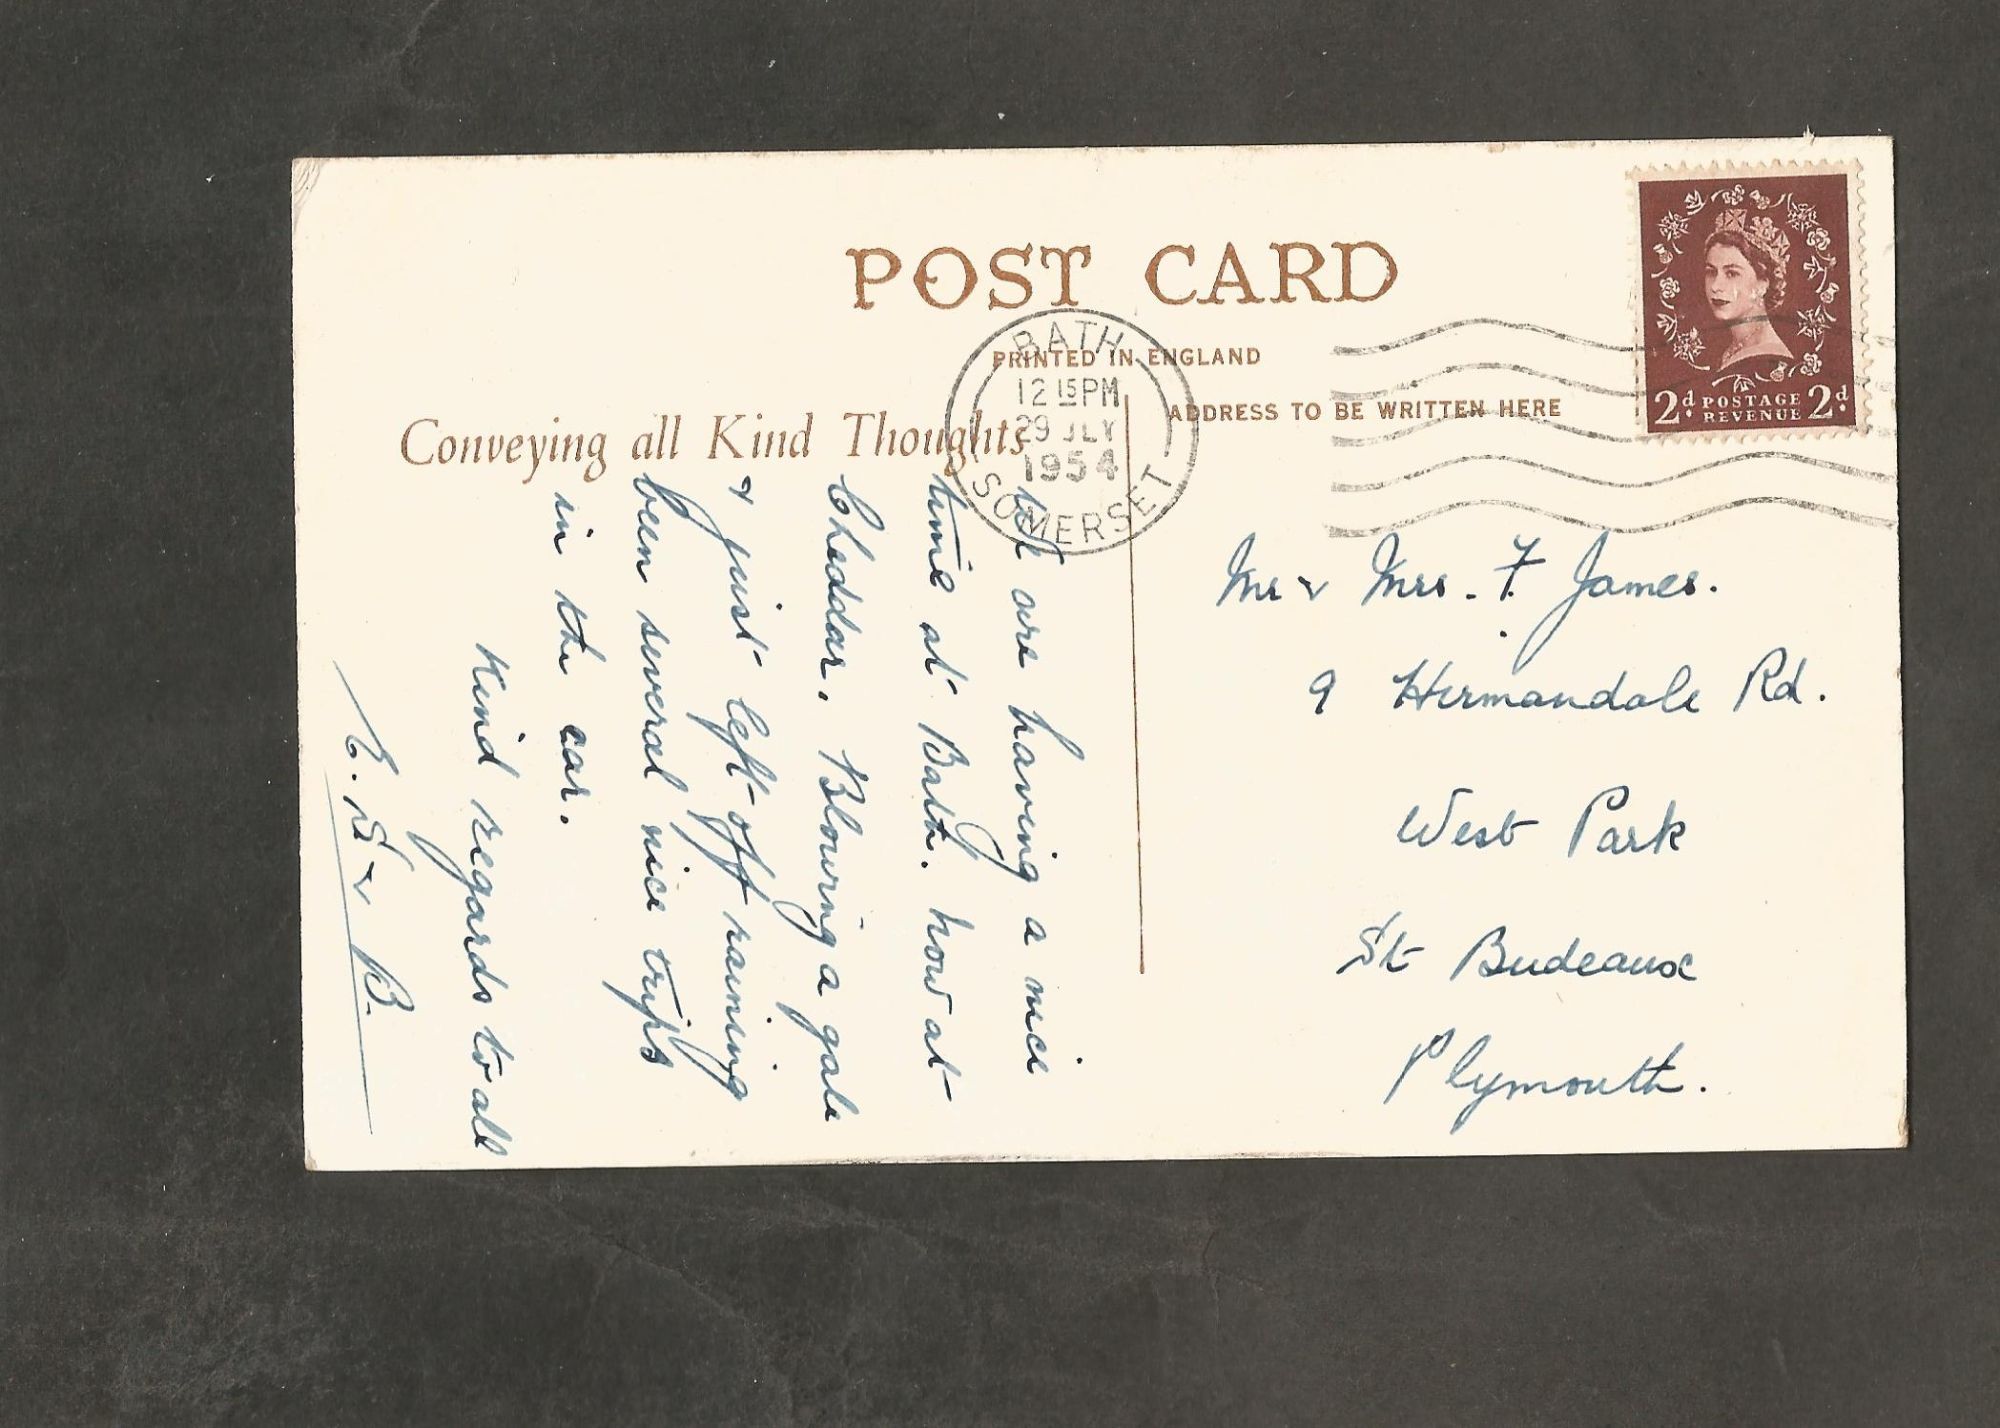 POST CARD
PRINTED IN ENGLAND
ADDRESS TO BE WRITTEN HERE
Conveying all Kind Thoughts
BATH
12 15 PM
29 JLY
1954
SOMERSET
2d. POSTAGE REVENUE 2d.
We are having a nice
time at Bath. now at
Cheddar. Blowing a gale
& just left off raining
been several nice trips
in the car.
Kind regards to all
E. & B.
Mr & Mrs. F. James.
9 Hermandale Rd.
West Park
St Budeaux
Plymouth.